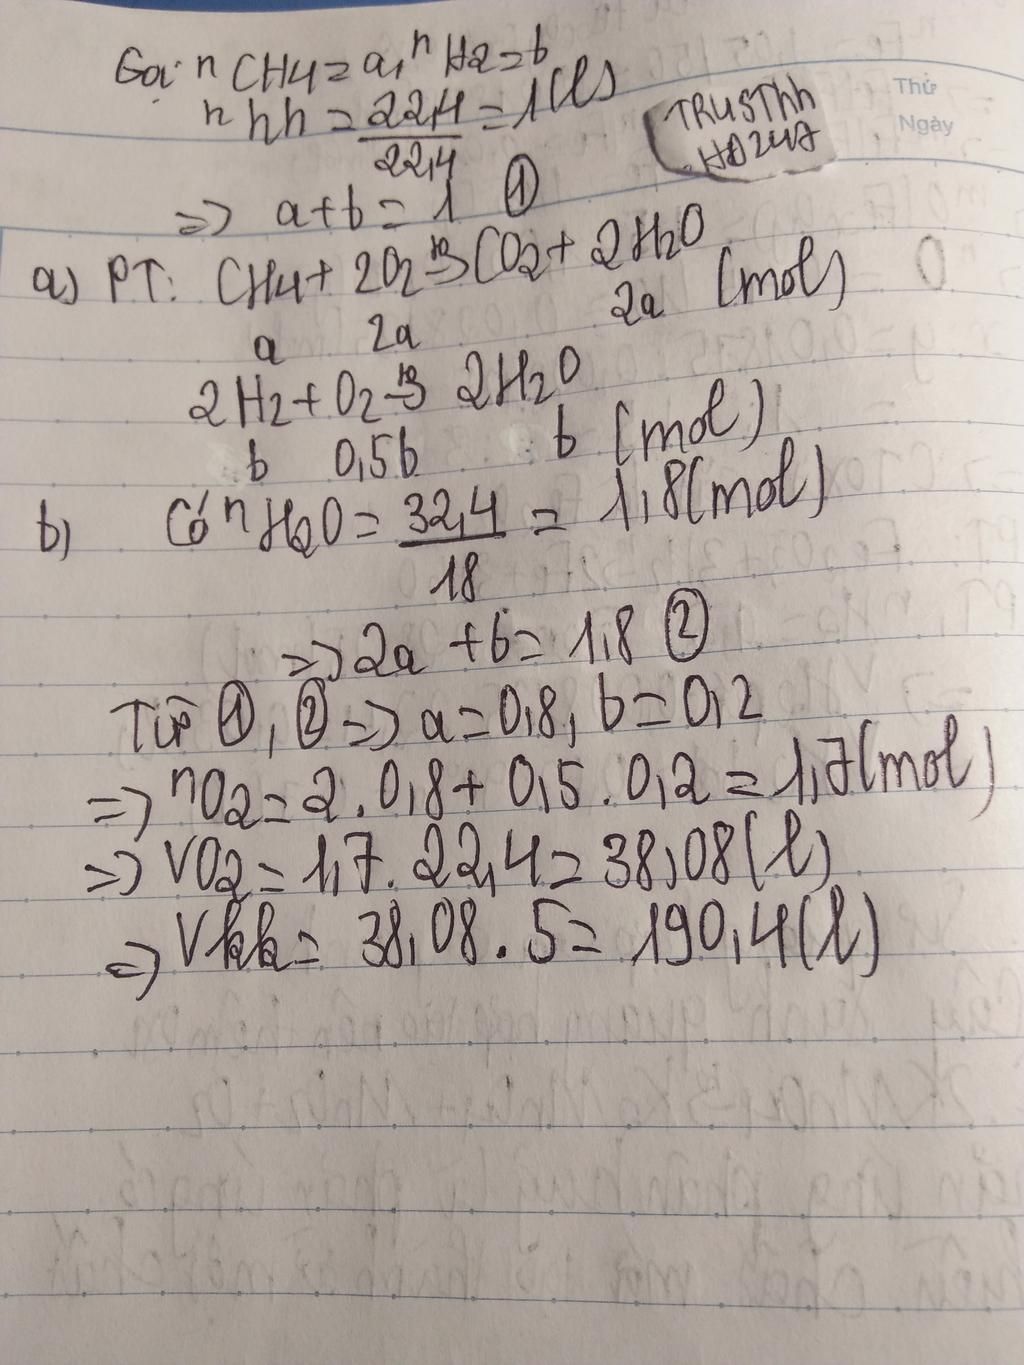 Gọi nCH4 = a, nH2 = b
nhh = 22,4/22,4 = 1(l)
TRUSThh
HĐ247
Thứ
Ngày
=> a+b = 1 ①
a) PT: CH4 + 2O2 -to-> CO2 + 2H2O
a 2a 2a (mol)
2H2 + O2 -to-> 2H2O
b 0,5b b (mol)
b) Có nH2O = 32,4/18 = 1,8(mol)
=> 2a + b = 1,8 ②
Từ ①, ② => a = 0,8, b = 0,2
=> nO2 = 2.0,8 + 0,5.0,2 = 1,7(mol)
=> VO2 = 1,7.22,4 = 38,08(l)
=> Vkk = 38,08.5 = 190,4(l)